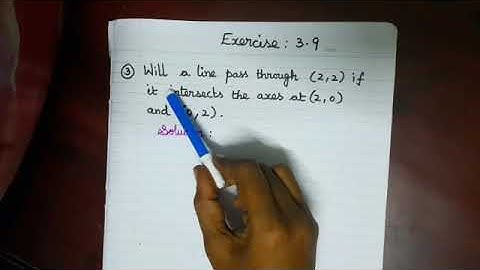 Exercise: 3.9
③ Will a line pass through (2,2) if
it intersects the axes at (2,0)
and , 2).